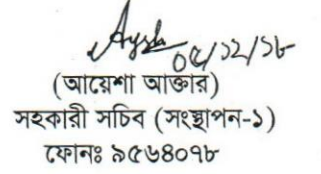 Aysha
০৫/১২/১৮
(আয়েশা আক্তার)
সহকারী সচিব (সংস্থাপন-১)
ফোনঃ ৯৫৬৪০৭৮